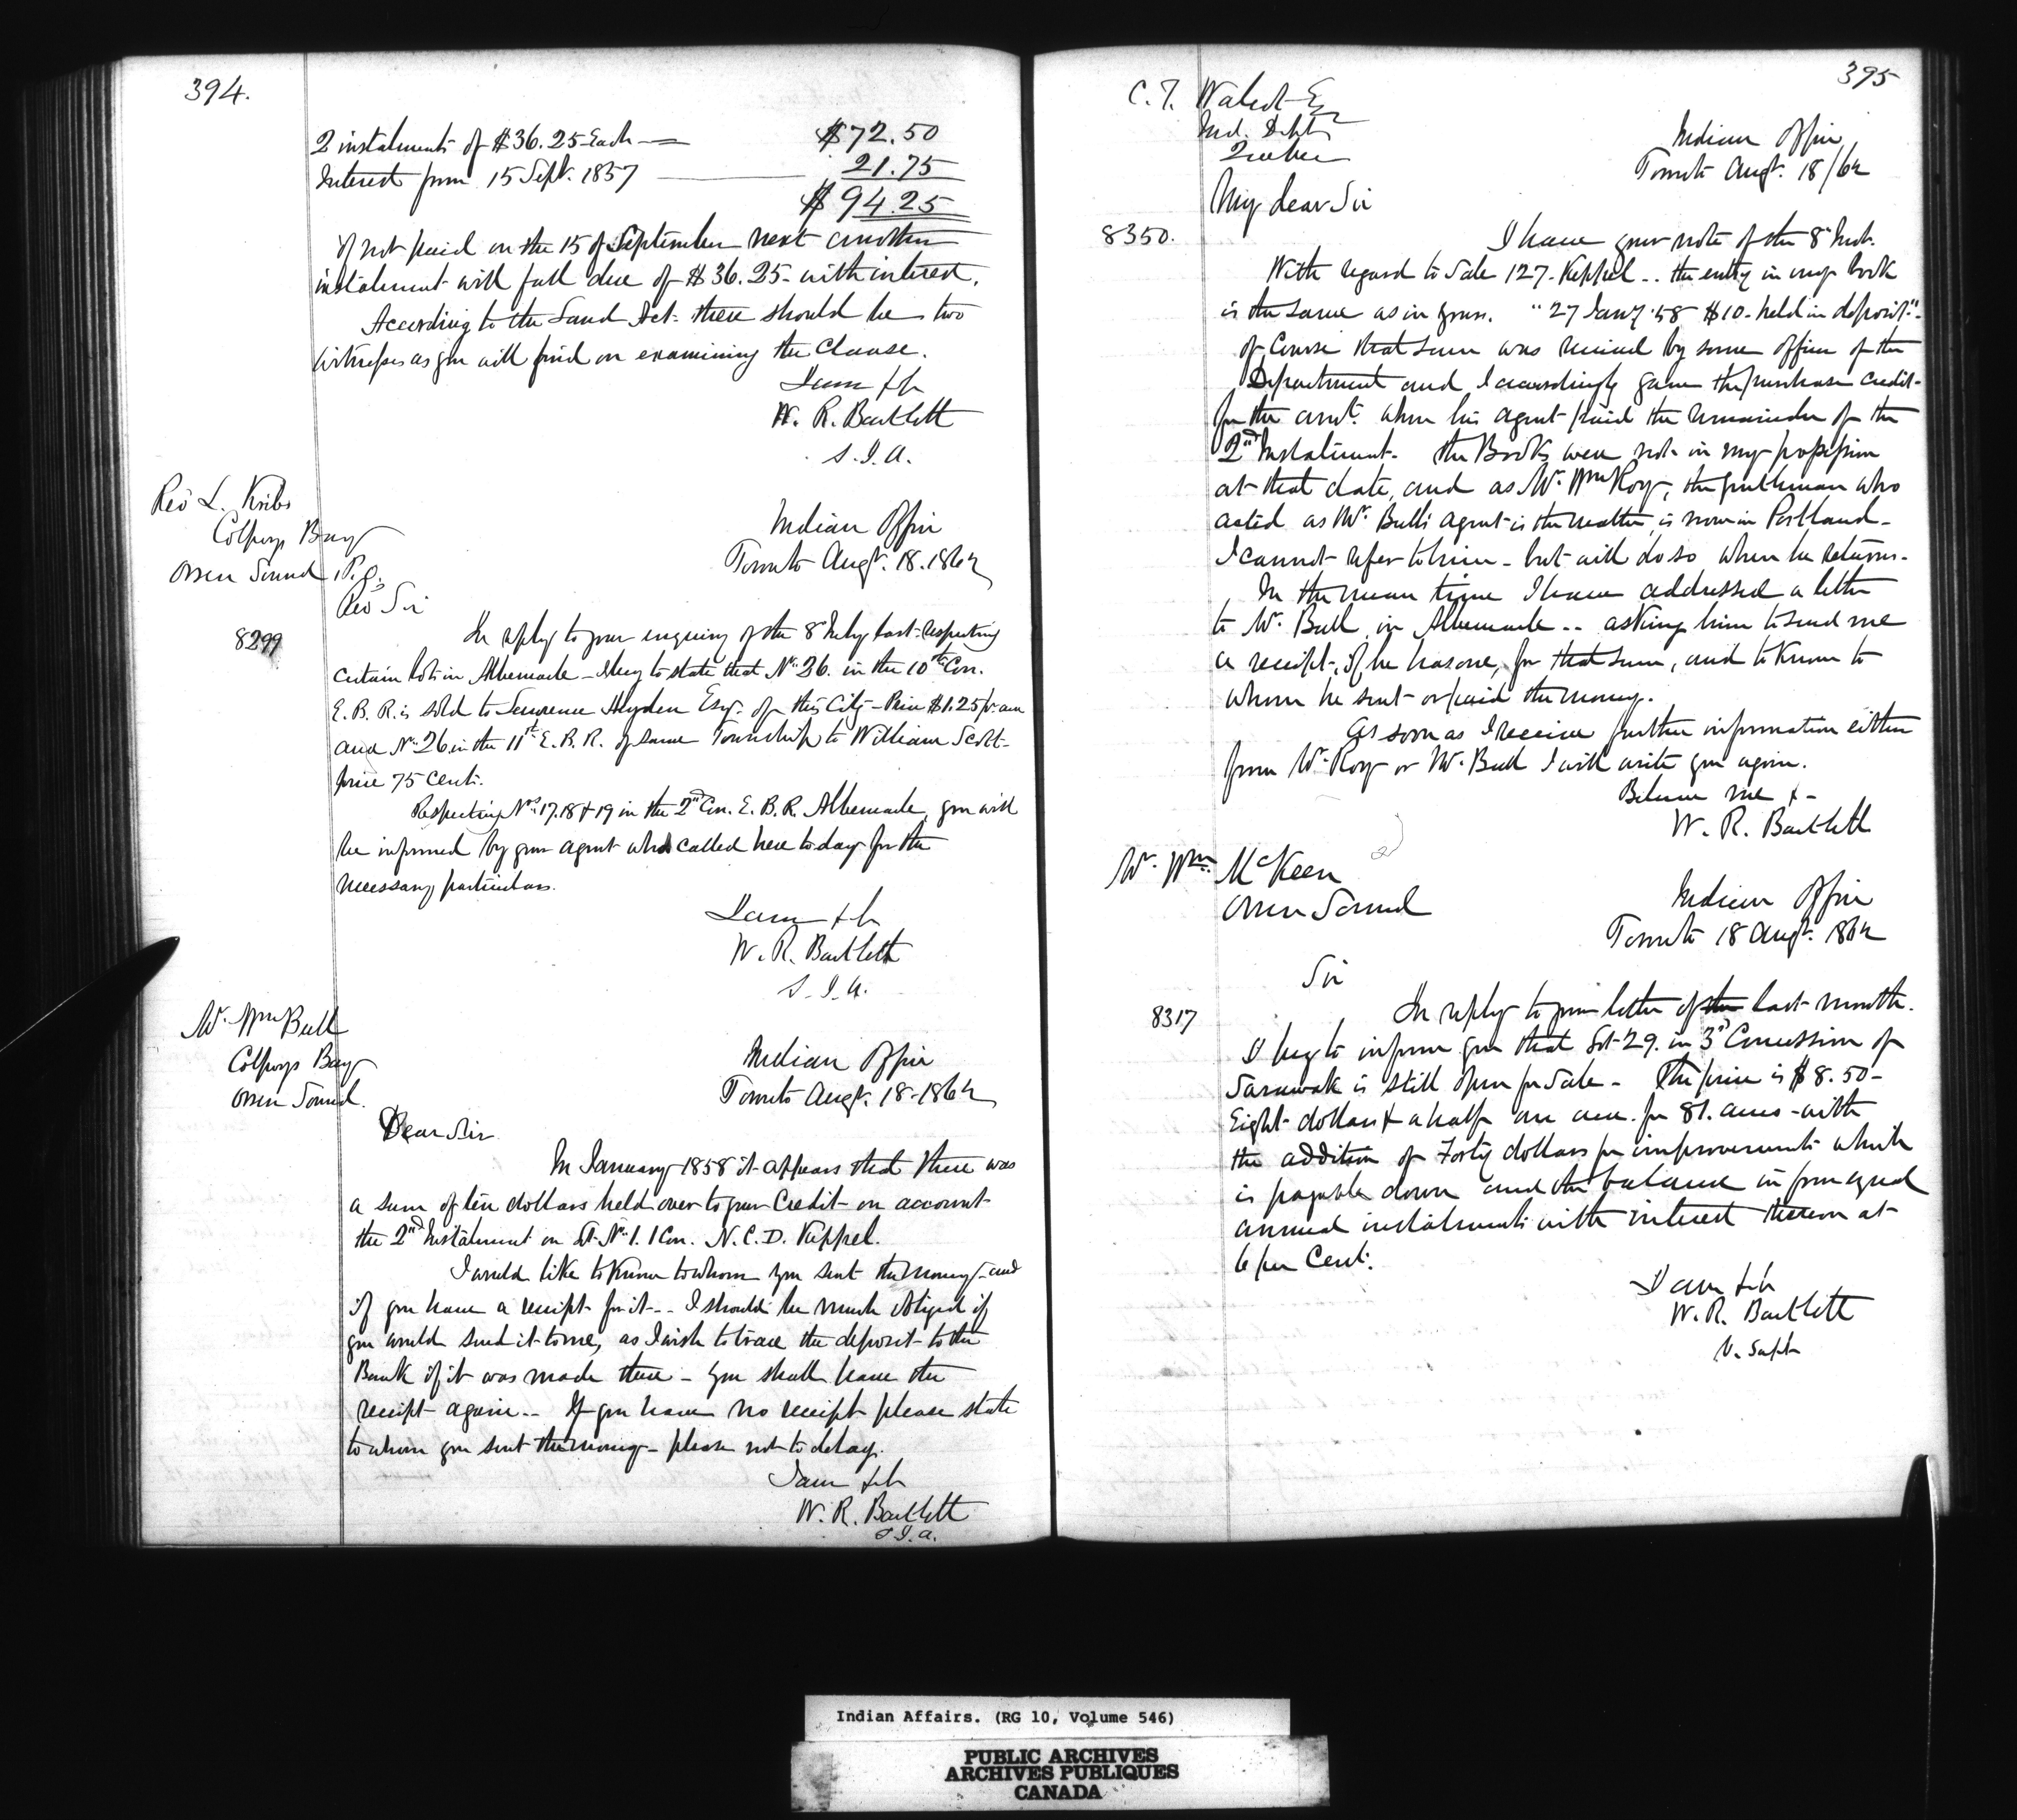 394.
2 instalments of $36.25 Each — $72.50
Interest from 15 Sept. 1857 — 21.75
$94.25
If not paid on the 15 of September next another
instalment will fall due of $36.25 - with interest.
According to the Land Act - there should be two
witnesses as you will find on examining the Clause.
I am &c
W. R. Bartlett
S. I. A.
Rev L. Kribs
Colpoys Bay
Owen Sound P.O.
Indian Office
Toronto Augt. 18. 1862
Rev Sir
8299
In reply to your enquiry of the 8 July last respecting
certain lots in Albemarle - I beg to state that No. 26. in the 10th Con.
E. B. R. is sold to Lawrence Heyden Esqr. of this City - Price $1.25 pr. acre
and No. 26 in the 11th E. B. R. of same Township to William Scott -
price 75 cents.
Respecting Nos. 17. 18 & 19 in the 2nd Con. E. B. R. Albemarle, you will
be informed by your agent who called here to day for the
necessary particulars.
I am &c
W. R. Bartlett
S. I. A.
Mr. Wm Bull
Colpoys Bay
Owen Sound.
Indian Office
Toronto Augt. 18 - 1862
Dear Sir
In January 1858 it appears that there was
a sum of ten dollars held over to your Credit on account
the 2nd Instalment on Lt. No. 1. 1 Con. N. C. D. Keppel.
I would like to know to whom you sent the money - and
if you have a receipt for it -- I should be much obliged if
you would send it to me, as I wish to trace the deposit to the
Bank if it was made there - you shall have the
receipt again -- If you have no receipt please state
to whom you sent the money - please not to delay.
I am &c
W. R. Bartlett
S. I. A.
395
C. T. Walcot Esq
Ind. Dept
Quebec
Indian Office
Toronto Augt. 18/62
My dear Sir
8350.
I have your note of the 8 Inst.
With regard to Sale 127. Keppel -- the entry in my Book
is the same as in yours. "27 Jany '58 $10 - held in deposit" -
of Course that sum was received by some officer of the
Department and I accordingly gave the purchaser credit -
for the amt. when his agent paid the remainder of the
2nd Instalment. The Books were not in my possession
at that date, and as Mr. Wm Roy, the gentleman who
acted as Mr. Bull's agent in the matter, is now in Portland -
I cannot refer to him - but will do so when he returns.
In the mean time I have addressed a letter
to Mr. Bull, in Albemarle -- asking him to send me
a receipt, if he has one, for that sum, and to know to
whom he sent or paid the money.
As soon as I receive further information either
from Mr. Roy or Mr. Bull I will write you again.
Believe me &-
W. R. Bartlett
Mr. Wm. McKeen
Owen Sound
Indian Office
Toronto 18 Augt. 1862
Sir
8317
In reply to your letter of the last month.
I beg to inform you that Lot 29. in 3d Concession of
Sarawak is still open for Sale - The price is $8.50 -
Eight dollars & a half an acre. for 81. acres - with
the addition of Forty dollars for improvements which
is payable down and the balance in four equal
annual instalments with interest thereon at
6 per Cent.
I am &c
W. R. Bartlett
V. Supt
Indian Affairs. (RG 10, Volume 546)
PUBLIC ARCHIVES
ARCHIVES PUBLIQUES
CANADA